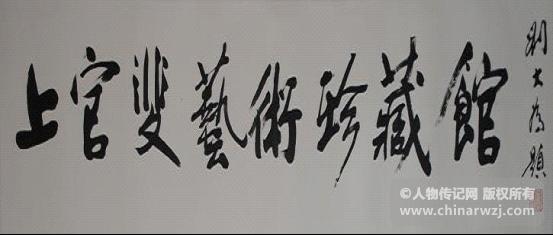 上官雙藝術珍藏館
刘大为題
©人物传记网 版权所有
www.chinarwzj.com